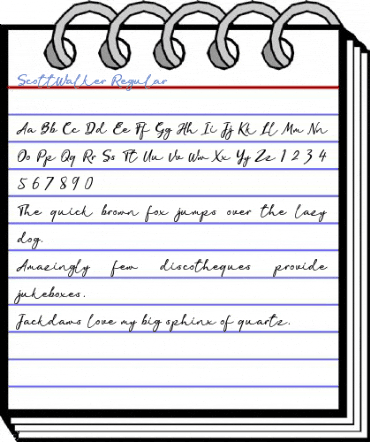 ScottWalker Regular
Aa Bb Cc Dd Ee Ff Gg Hh Ii Jj Kk Ll Mm Nn
Oo Pp Qq Rr Ss Tt Uu Vv Ww Xx Yy Zz 1 2 3 4
5 6 7 8 9 0
The quick brown fox jumps over the lazy
dog.
Amazingly few discotheques provide
jukeboxes.
Jackdaws love my big sphinx of quartz.